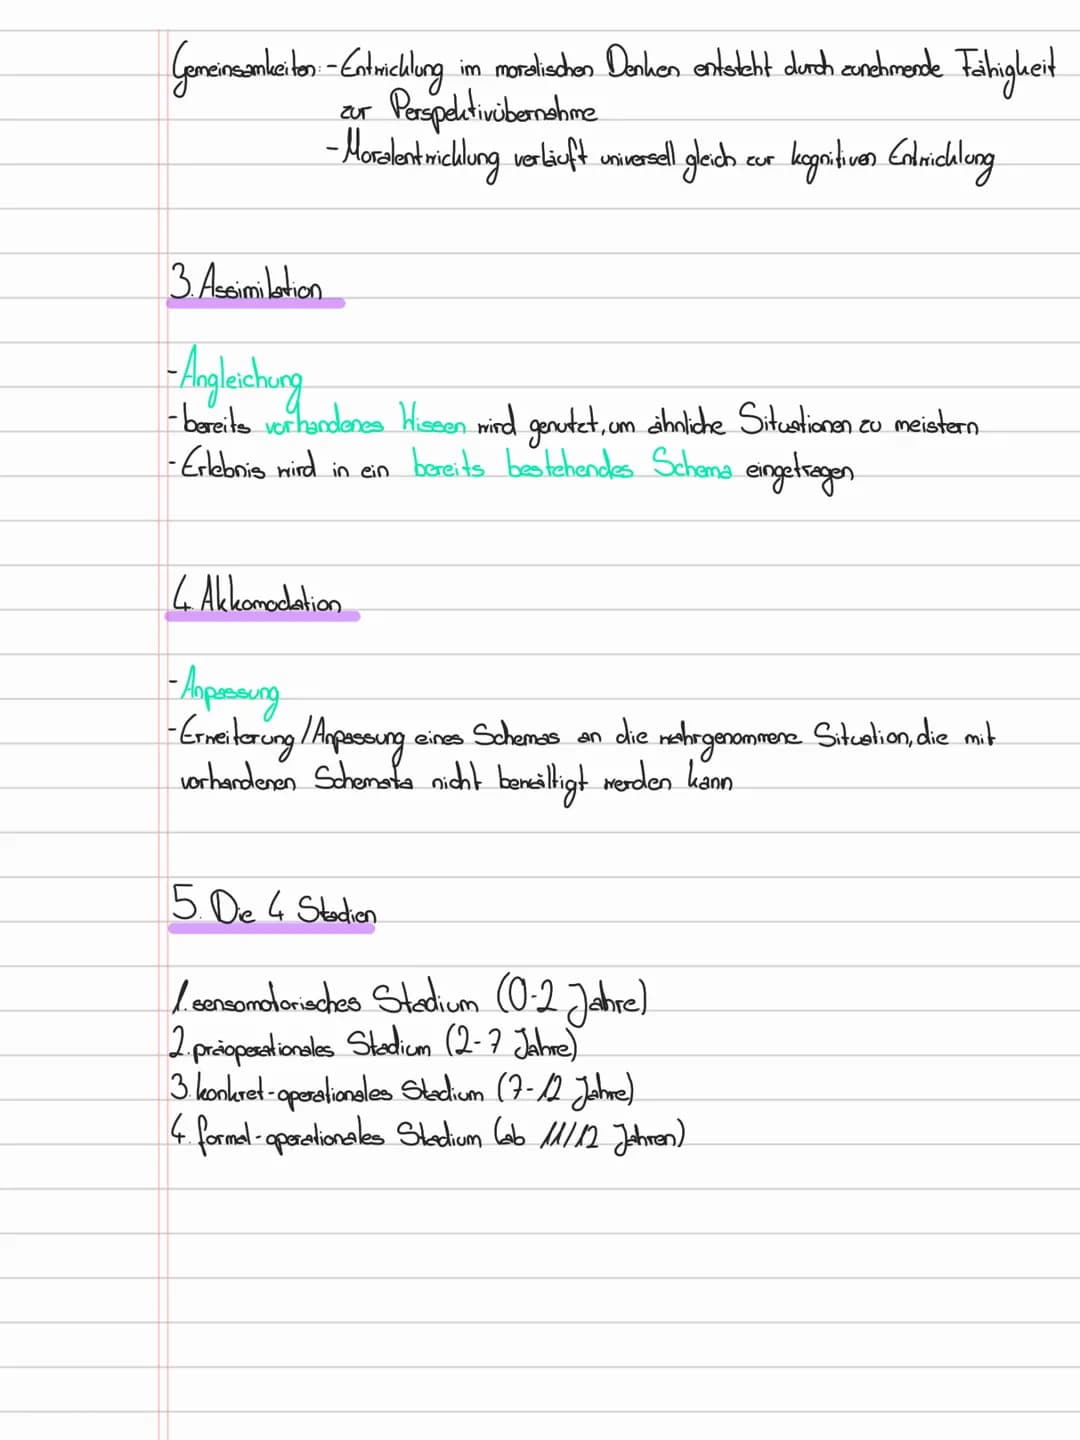 Gemeinsamkeiten: - Entwicklung im moralischen Denken entsteht durch zunehmende Fähigkeit
zur Perspektivübernahme
- Moralentwicklung verläuft universell gleich zur kognitiven Entwicklung
3. Assimilation
- Angleichung
- bereits vorhandenes Wissen wird genutzt, um ähnliche Situationen zu meistern
- Erlebnis wird in ein bereits bestehendes Schema eingetragen
4. Akkomodation
- Anpassung
- Erweiterung / Anpassung eines Schemas an die wahrgenommene Situation, die mit
vorhandenen Schemata nicht bewältigt werden kann
5. Die 4 Stadien
1. sensomotorisches Stadium (0-2 Jahre)
2. präoperationales Stadium (2-7 Jahre)
3. konkret-operationales Stadium (7-12 Jahre)
4. formal-operationales Stadium (ab 11/12 Jahren)